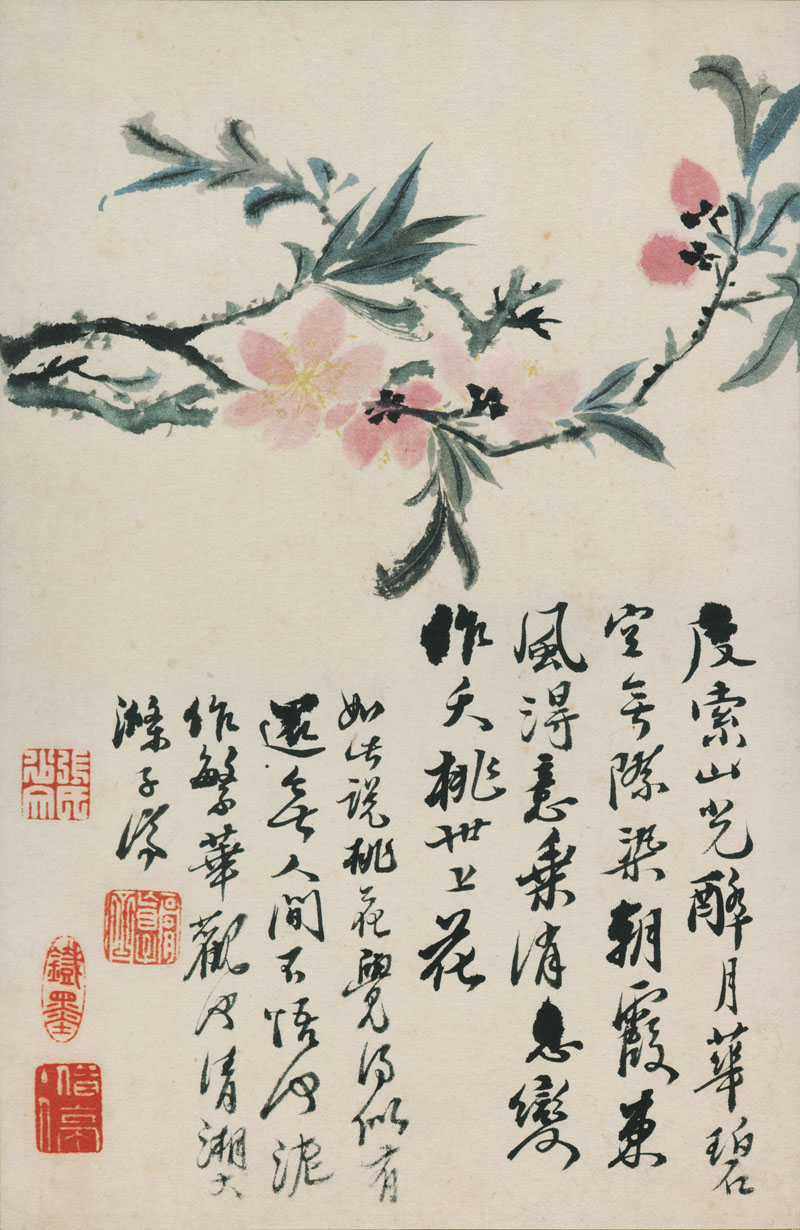 度索山光醉月華碧
空無際染朝霞東
風得意乘消息變
作夭桃世上花
如此說桃花覺得似有
還無人間不悟何泥
作繁華觀耶清湘大
滌子濟
鐵墨